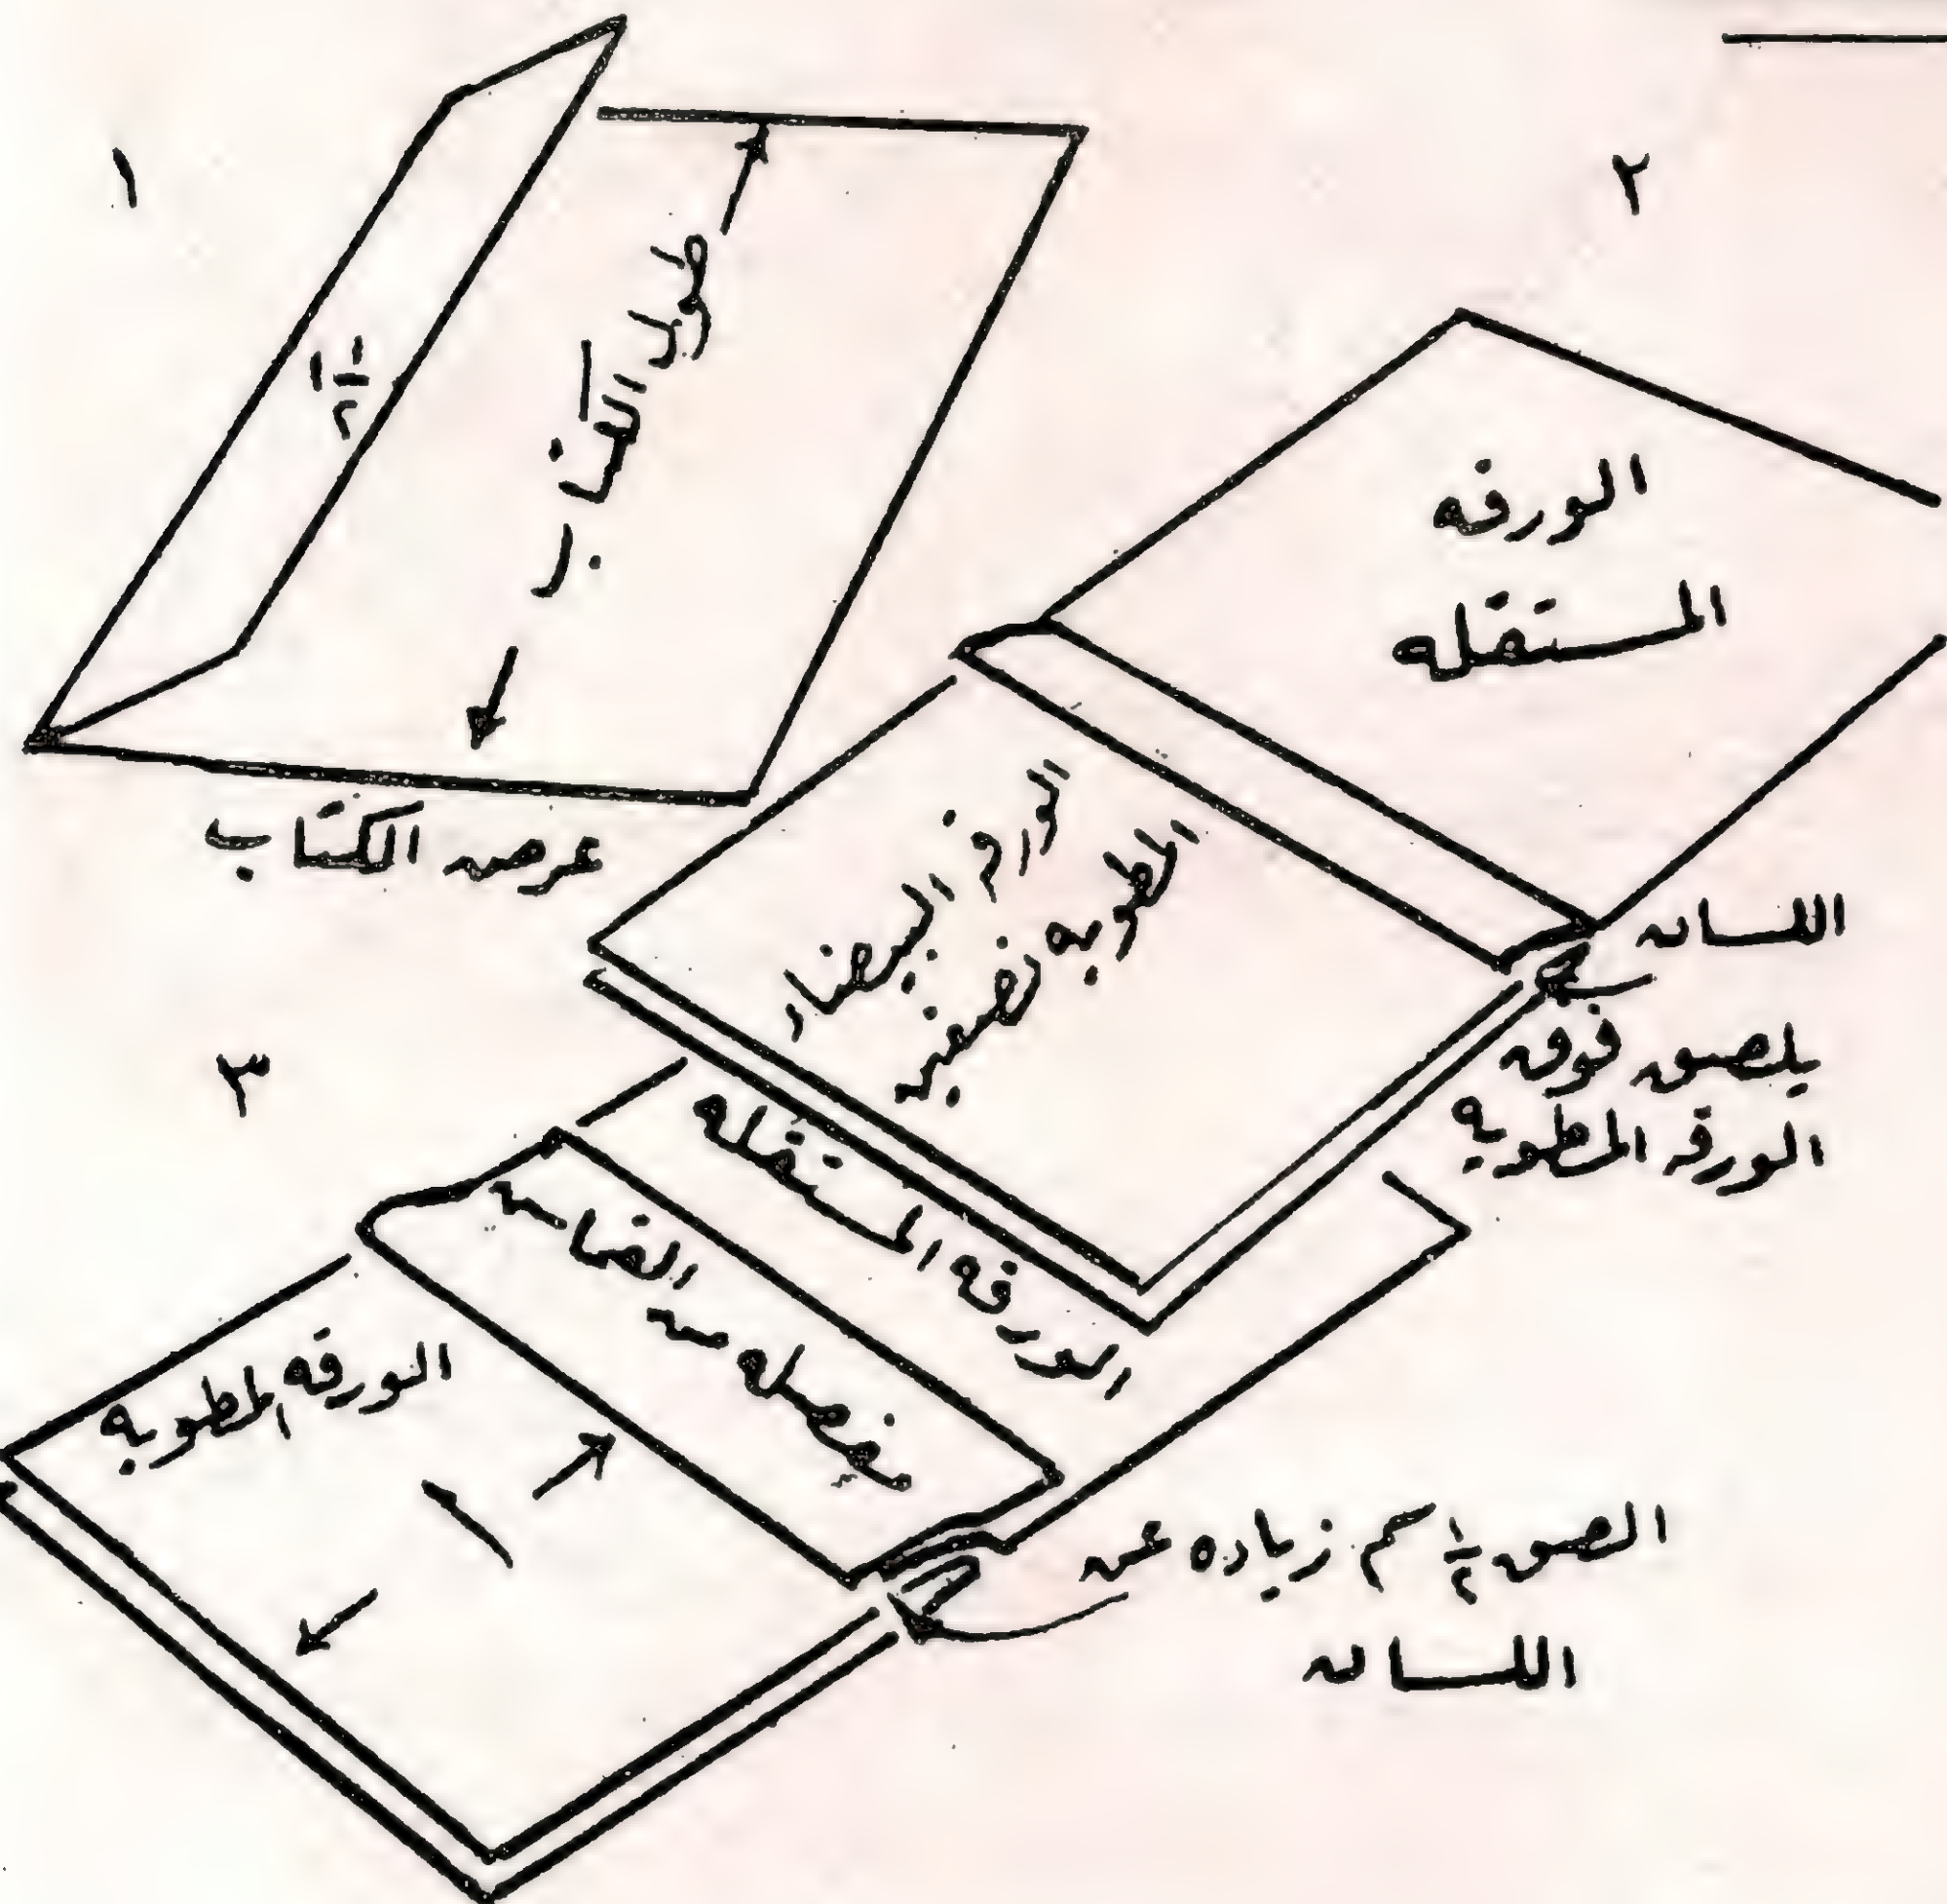 ١
١ ١/٢
طول الكتاب
عرض الكتاب
٢
الورقه
المستقله
الورقه البيضاء
المطويه نصفين
اللسان
يلصق فوق
الورقه المطويه
٣
الورقه المستقله
مفصله من القماش
الورقه المطويه
الصق ١/٢ سم زياده عن
اللسان